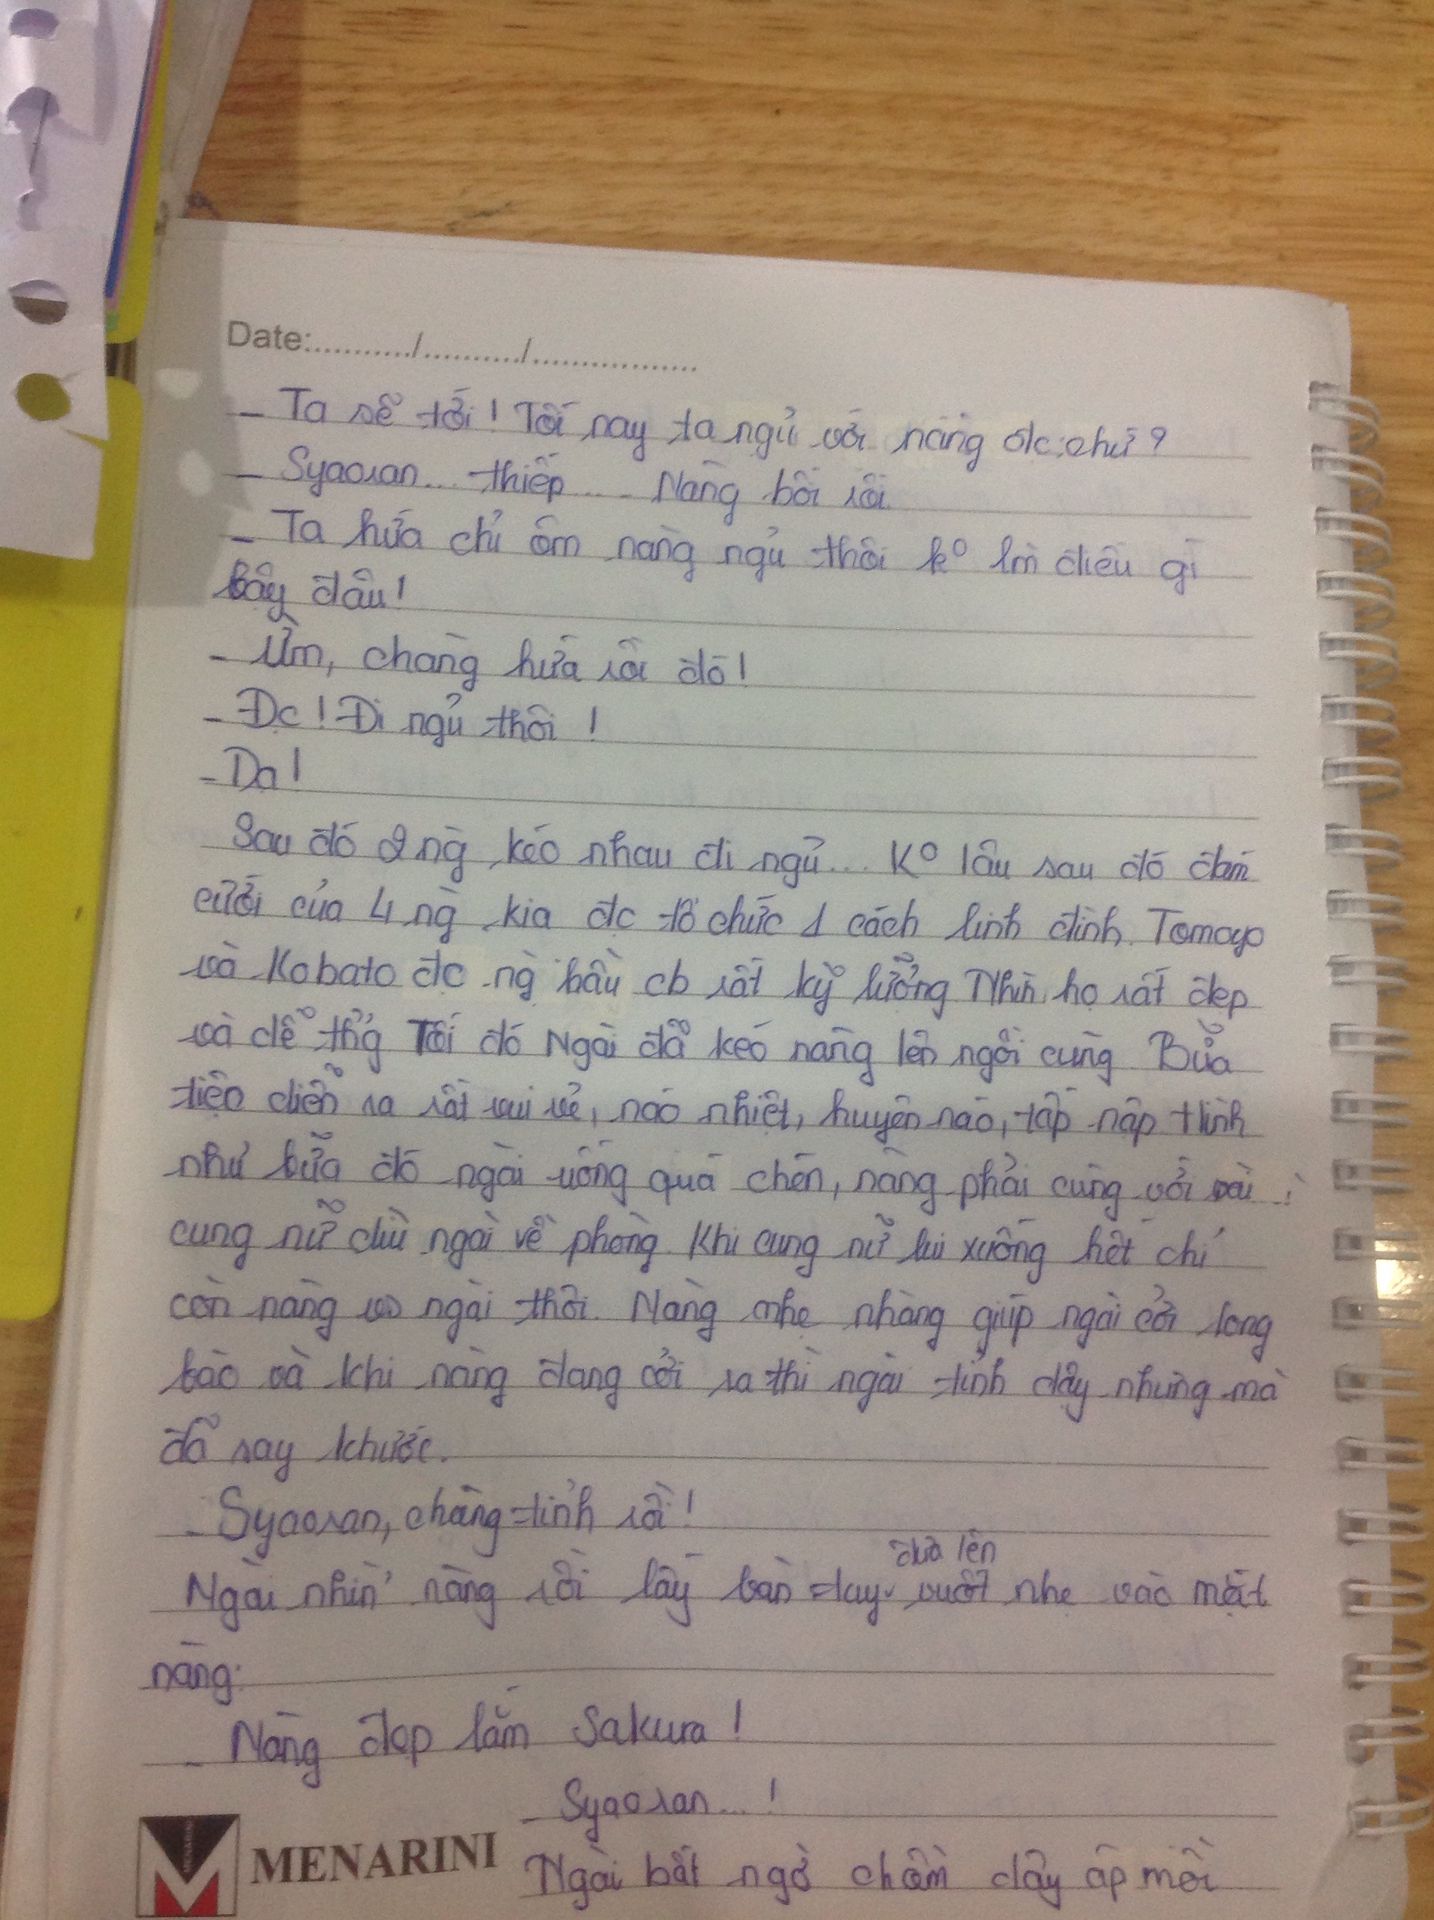 Date:.........../.........../..................
- Ta sẽ tới! Tối nay ta ngủ với nàng đc chứ?
- Syaoran... thiếp... Nàng bối rối
- Ta hứa chỉ ôm nàng ngủ thôi k° lm điều gì
bậy đâu!
- Ừm, chàng hứa rồi đó!
- Đc! Đi ngủ thôi!
- Dạ!
Sau đó 2 ng kéo nhau đi ngủ... K° lâu sau đó đám
cưới của 4 ng kia đc tổ chức 1 cách linh đình. Tomoyo
và Kobato đc ng hầu cb rất kỹ lưỡng Nhìn họ rất đẹp
và dễ thg Tối đó Ngài đã kéo nàng lên ngồi cùng Bữa
tiệc diễn ra rất vui vẻ, náo nhiệt, huyên náo, tấp nập Hình
như bữa đó ngài uống quá chén, nàng phải cùng với vài
cung nữ dìu ngài về phòng. Khi cung nữ lui xuống hết chỉ
còn nàng vs ngài thôi. Nàng nhẹ nhàng giúp ngài cởi long
bào và khi nàng đang cởi ra thì ngài tỉnh dậy nhưng mà
đã say khước.
- Syaoran, chàng tỉnh rồi!
Ngài nhìn nàng rồi lấy bàn tay đưa lên vuốt nhẹ vào mặt
nàng:
- Nàng đẹp lắm Sakura!
- Syaoran...!
Ngài bất ngờ chồm dậy áp môi
MENARINI